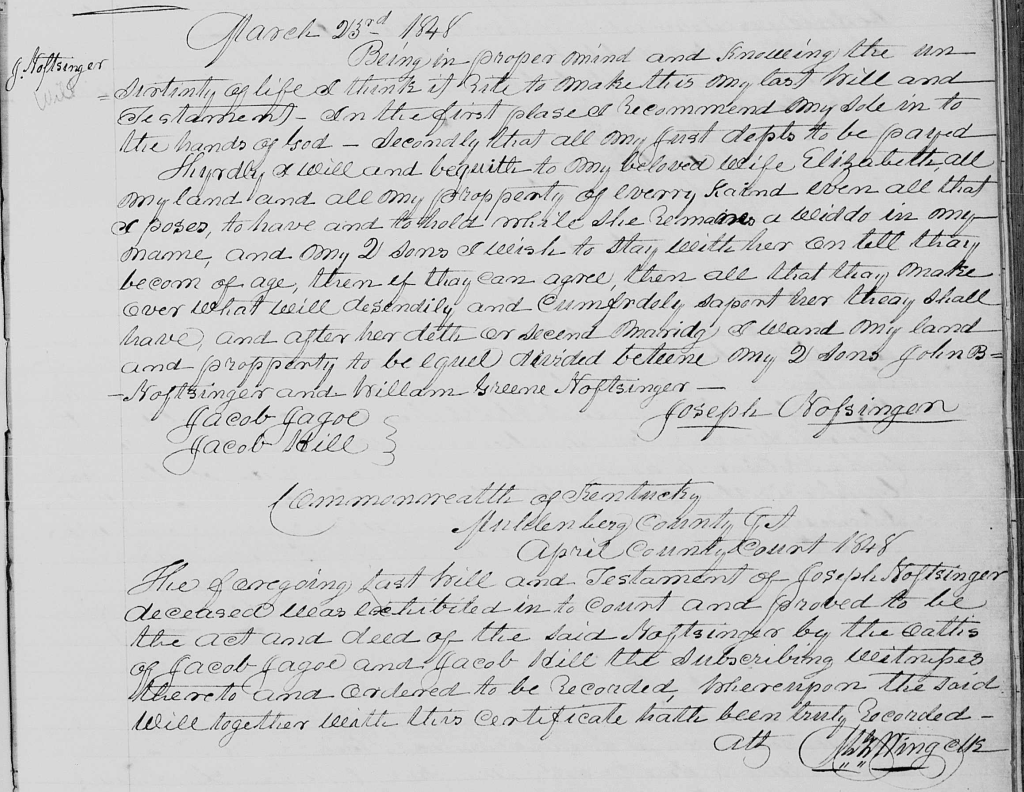 March 23rd 1848
J. Noftsinger
Will
Being in proper mind and Knowing the un
=sirtinty of life I think it Rite to make this my last Will and
Testament - In the first plase I Recommend my Sole in to
the hands of God - Secondly that all my Just depts to be payed
Thyrdly I will and bequith to my beloved Wife Elizabeth, all
my land and all my propperty of everry Kaind even all that
I poses, to have and to hold while She Remains a widdo in my
name, and my 2 sons I wish to stay with her on till thay
becom of age, then if thay can agree, then all that thay make
over what will desendily and Cumfrdoly saport her theay shall
have, and after her deth or Second maridg I wand my land
and propperty to be equel divided betene my 2 sons John B=
- Noftsinger and William Greene Noftsinger -
Joseph Nofsinger
Jacob Jagoe
Jacob Hill }
Commonwealth of Kentucky
Muhlenberg County Ct
April County Court 1848
The foregoing Last Will and Testament of Joseph Noftsinger
deceased was Exhibited in to Court and proved to be
the act and deed of the said Noftsinger by the oaths
of Jacob Jagoe and Jacob Hill the subscribing Witnesses
thereto and ordered to be Recorded, whereupon the said
Will together with this certificate hath been truly Recorded -
att Wing Clk